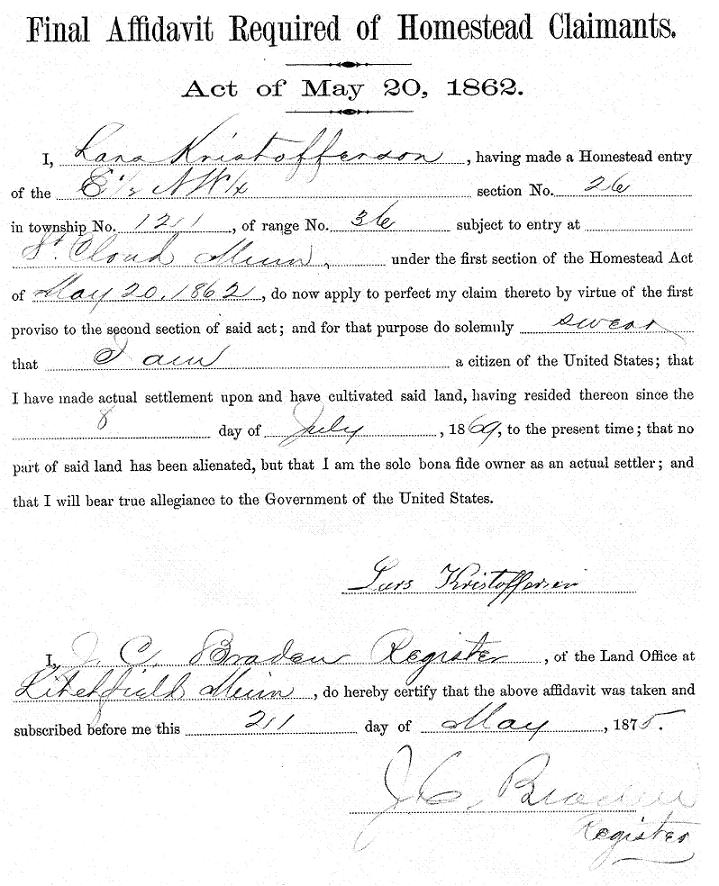 Final Affidavit Required of Homestead Claimants.
Act of May 20, 1862.
I, Lars Kristofferson, having made a Homestead entry
of the E 1/2 NW 1/4 section No. 26
in township No. 121, of range No. 36 subject to entry at
St. Cloud Minn, under the first section of the Homestead Act
of May 20, 1862, do now apply to perfect my claim thereto by virtue of the first
proviso to the second section of said act; and for that purpose do solemnly swear
that I am a citizen of the United States; that
I have made actual settlement upon and have cultivated said land, having resided thereon since the
8 day of July, 1869, to the present time; that no
part of said land has been alienated, but that I am the sole bona fide owner as an actual settler; and
that I will bear true allegiance to the Government of the United States.
Lars Kristofferson
I, J. C. Braden Register, of the Land Office at
Litchfield Minn, do hereby certify that the above affidavit was taken and
subscribed before me this 21 day of May, 1875.
J. C. Braden
Register